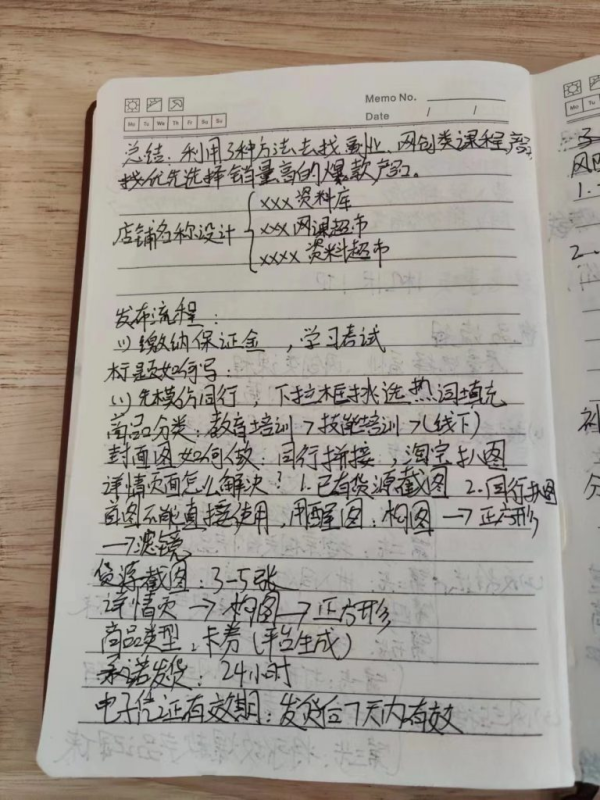 Memo No.
Mo Tu We Th Fr Sa Su
Date / /
总结：利用3种方法去找副业、网创类课程，
优先选择销量高的爆款产品。
店铺名称设计
xxx资料库
xxx网课超市
xxxx资料超市
发布流程：
(1) 缴纳保证金，学习考试
标题如何写：
(1) 先模仿同行，下拉框挑选热词填充
商品分类：教育培训>技能培训>(线下)
封面图如何做：同行拼接，淘宝扒图
详情页面怎么解决？1.已有货源截图 2.同行扒图
图不能直接使用，用醒图：构图→正方形
→滤镜
货源截图：3-5张
详情页→构图→正方形
商品类型：卡券(平台生成)
承诺发货：24小时
电子凭证有效期：发货后7天内有效